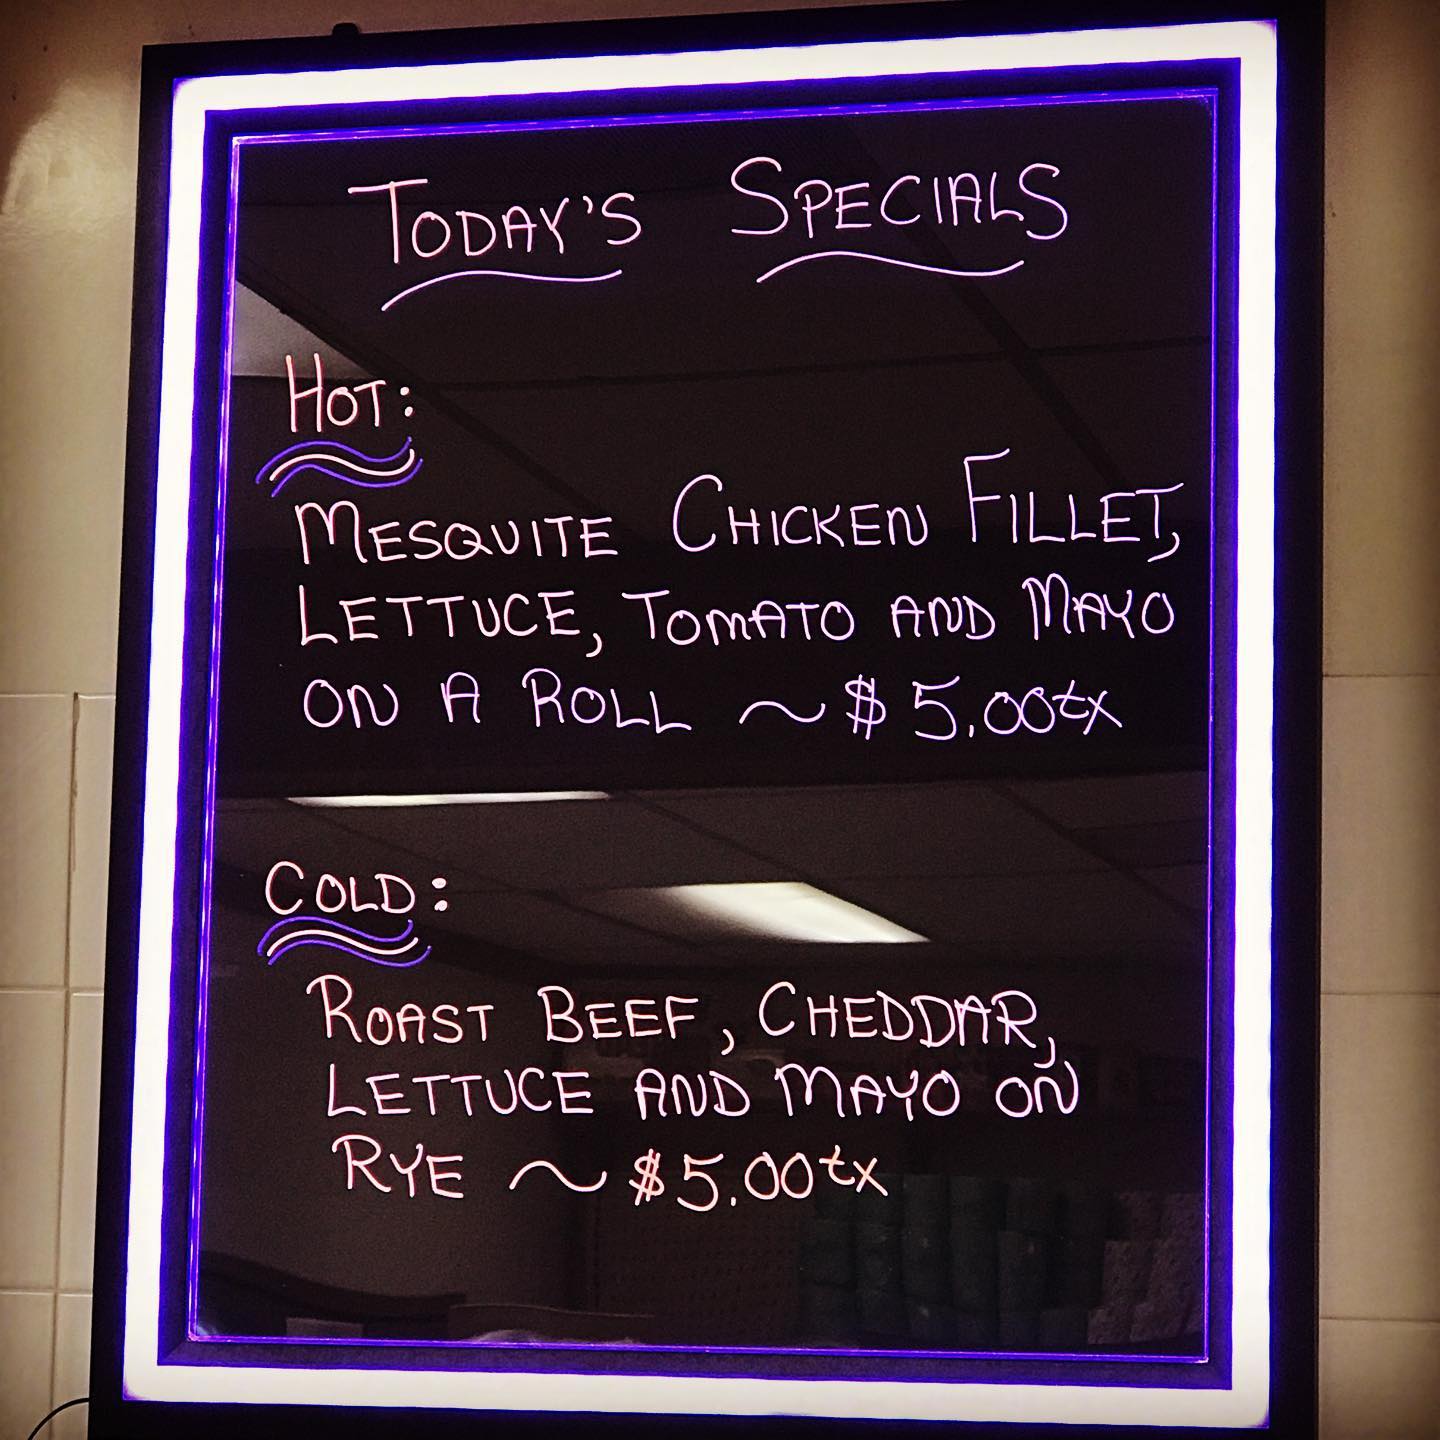 TODAY'S SPECIALS
HOT:
MESQUITE CHICKEN FILLET,
LETTUCE, TOMATO AND MAYO
ON A ROLL ~ $5.00tx
COLD:
ROAST BEEF, CHEDDAR,
LETTUCE AND MAYO ON
RYE ~ $5.00tx